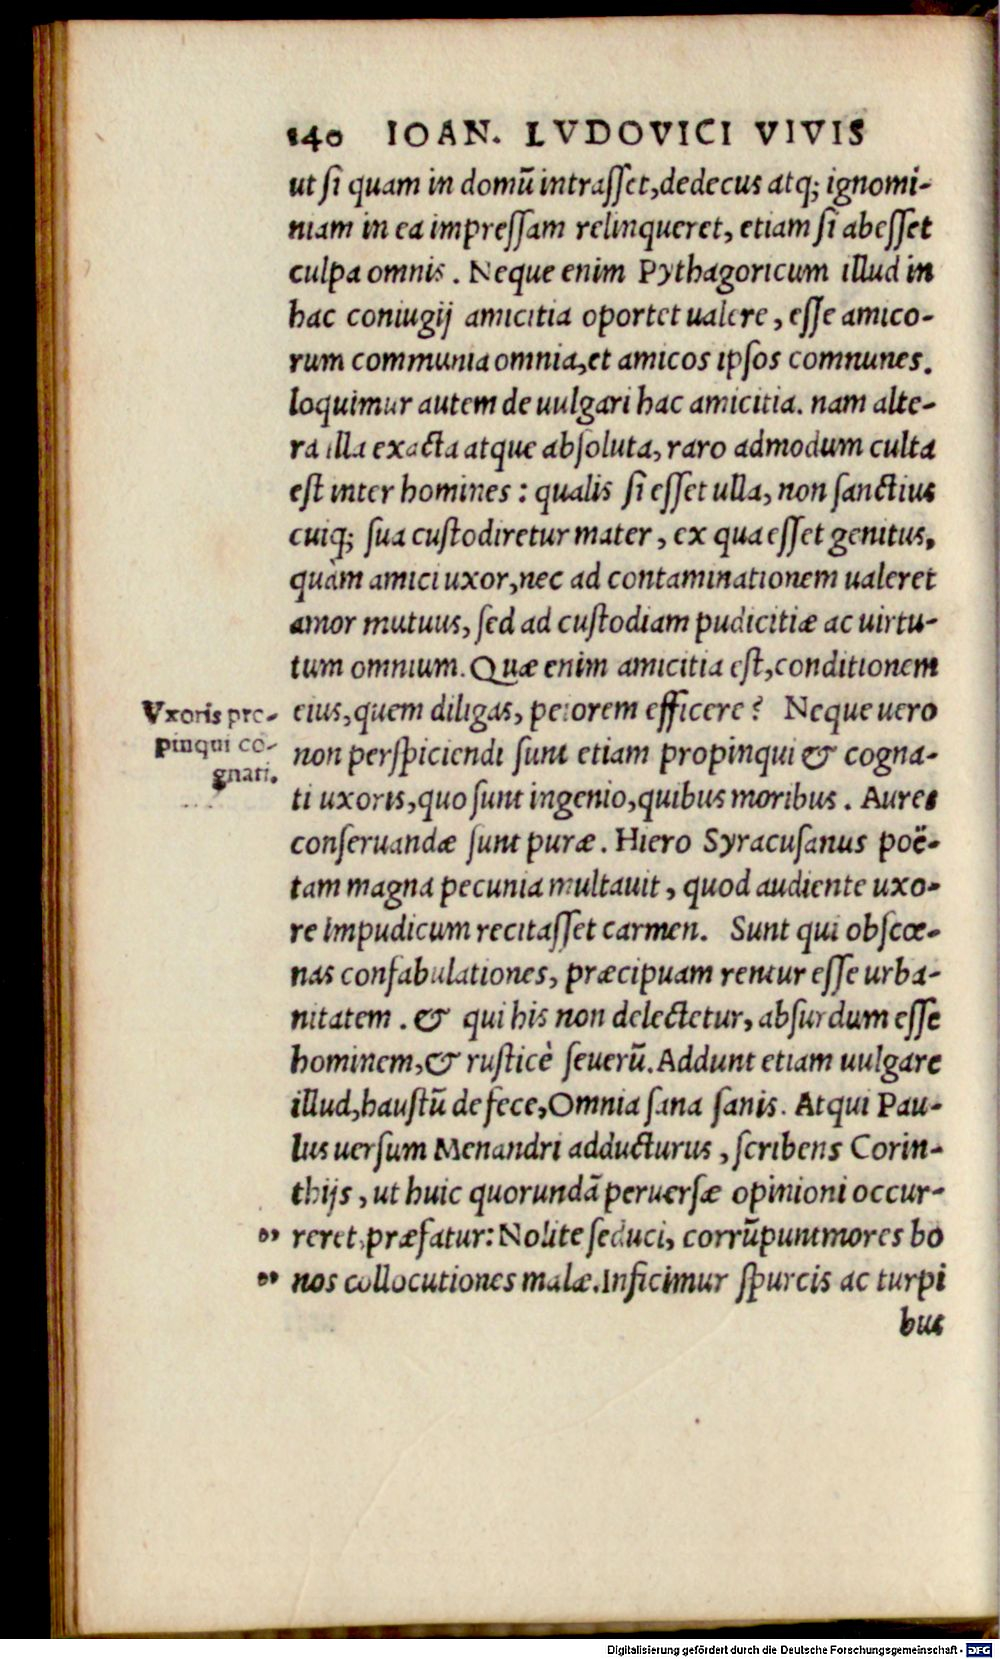 140 IOAN. LVDOVICI VIVIS
ut si quam in domū intrasset, dedecus atq; ignomi-
niam in ea impressam relinqueret, etiam si abesset
culpa omnis. Neque enim Pythagoricum illud in
hac coniugij amicitia oportet ualere, esse amico-
rum communia omnia, et amicos ipsos comnunes.
loquimur autem de uulgari hac amicitia. nam alte-
ra illa exacta atque absoluta, raro admodum culta
est inter homines: qualis si esset ulla, non sanctius
cuiq; sua custodiretur mater, ex qua esset genitus,
quàm amici uxor, nec ad contaminationem ualeret
amor mutuus, sed ad custodiam pudicitiæ ac uirtu-
tum omnium. Quæ enim amicitia est, conditionem
Vxoris pro-
pinqui co-
gnati.
eius, quem diligas, peiorem efficere? Neque uero
non perspiciendi sunt etiam propinqui & cogna-
ti uxoris, quo sunt ingenio, quibus moribus. Aures
conseruandæ sunt puræ. Hiero Syracusanus poë-
tam magna pecunia multauit, quod audiente uxo-
re impudicum recitasset carmen. Sunt qui obscœ-
nas confabulationes, præcipuam rentur esse urba-
nitatem. & qui his non delectetur, absurdum esse
hominem, & rusticè seuerū. Addunt etiam uulgare
illud, haustū de fece, Omnia sana sanis. Atqui Pau-
lus uersum Menandri adducturus, scribens Corin-
thijs, ut huic quorundā peruersæ opinioni occur-
" reret, præfatur: Nolite seduci, corrūpunt mores bo
" nos collocutiones malæ. Inficimur spurcis ac turpi
bus
Digitalisierung gefördert durch die Deutsche Forschungsgemeinschaft - DFG